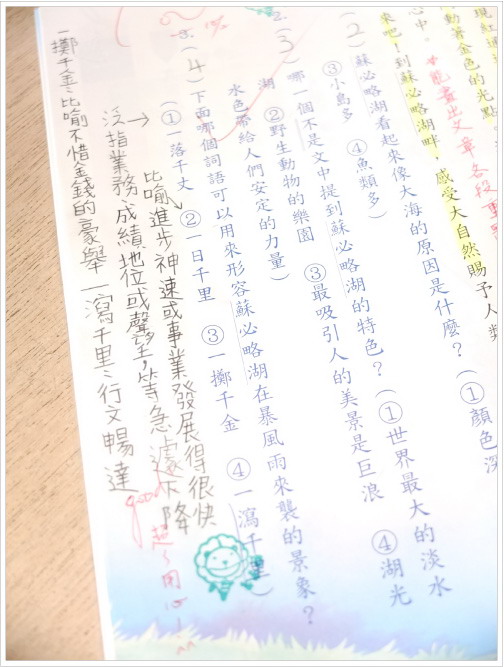 現紅
動著金色的光點
心中。*能畫出文章各段重
來吧！到蘇必略湖畔，感受大自然賜予人類
(2)蘇必略湖看起來像大海的原因是什麼？(①顏色深
③小島多 ④魚類多)
2.(3)哪一個不是文中提到蘇必略湖的特色？(①世界最大的淡水
湖 ②野生動物的樂園 ③最吸引人的美景是巨浪 ④湖光
水色帶給人們安定的力量)
3.(4)下面哪個詞語可以用來形容蘇必略湖在暴風雨來襲的景象？
(①一落千丈 ②一日千里 ③一擲千金 ④一瀉千里)
比喻進步神速或事業發展得很快
→泛指業務、成績地位或聲望，等急遽下降
一擲千金：比喻不惜金錢的豪舉 一瀉千里：行文暢達
good 超用心